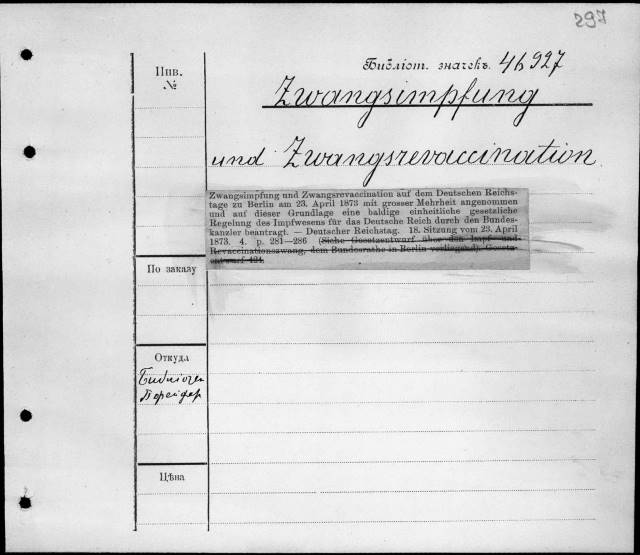 297
Инв.
№
Библіот. значекъ. 46927
Zwangsimpfung
und Zwangsrevaccination
Zwangsimpfung und Zwangsrevaccination auf dem Deutschen Reichs-
tage zu Berlin am 23. April 1873 mit grosser Mehrheit angenommen
und auf dieser Grundlage eine baldige einheitliche gesetzliche
Regelung des Impfwesens für das Deutsche Reich durch den Bundes-
kanzler beantragt. — Deutscher Reichstag. 18. Sitzung vom 23. April
1873. 4. p. 281—286 (Siehe Gesetzentwurf über den Impf- und
Revaccinationszwang, dem Bundesrathe in Berlin vorliegend). Gesetz-
entwurf 424.
По заказу
Откуда
Цѣна